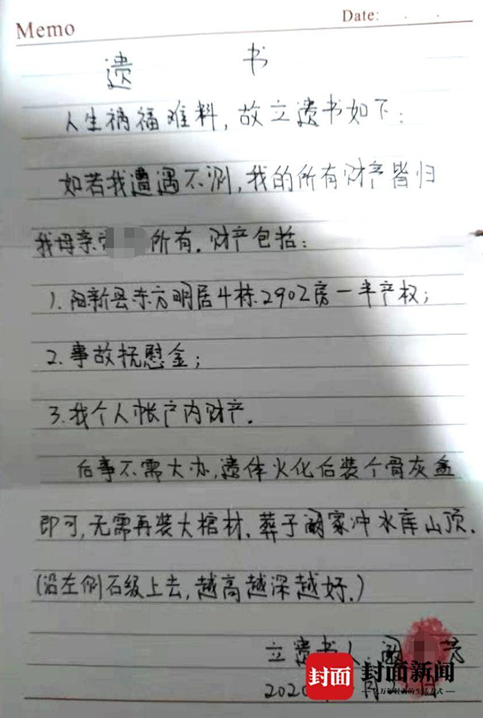 Memo Date:
遗 书
人生祸福难料,故立遗书如下:
如若我遭遇不测,我的所有财产皆归
我母亲 所有.财产包括:
1.阳新县东方明居4栋2902房一半产权;
2.事故抚慰金;
3.我个人帐户内财产.
后事不需大办,遗体火化后装个骨灰盒
即可,无需再装大棺材.葬于阚家冲水库山顶.
(沿左侧石级上去,越高越深越好.)
立遗书人 芳
封面 封面新闻
2020 月